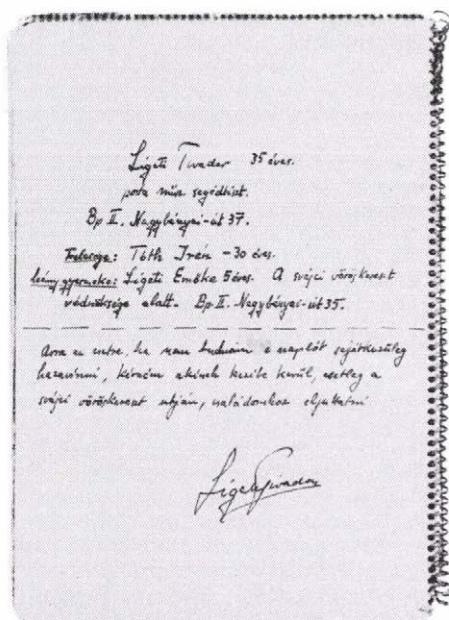 Ligeti Tivadar 35 éves.
posta műsz segédtiszt.
Bp II. Nagybányai-út 37.
Felesége: Tóth Irén - 30 éves.
leány gyermeke: Ligeti Emőke 5 éves. A svájci vöröskereszt
védnöksége alatt. Bp. II. Nagybányai-út 35.
Arra az esetre, ha nem tudnám e naplót sajátkezűleg
hazavinni, kérném akinek kezibe kerül, esetleg a
svájci vöröskereszt utján, családomhoz eljuttatni
Ligeti Tivadar